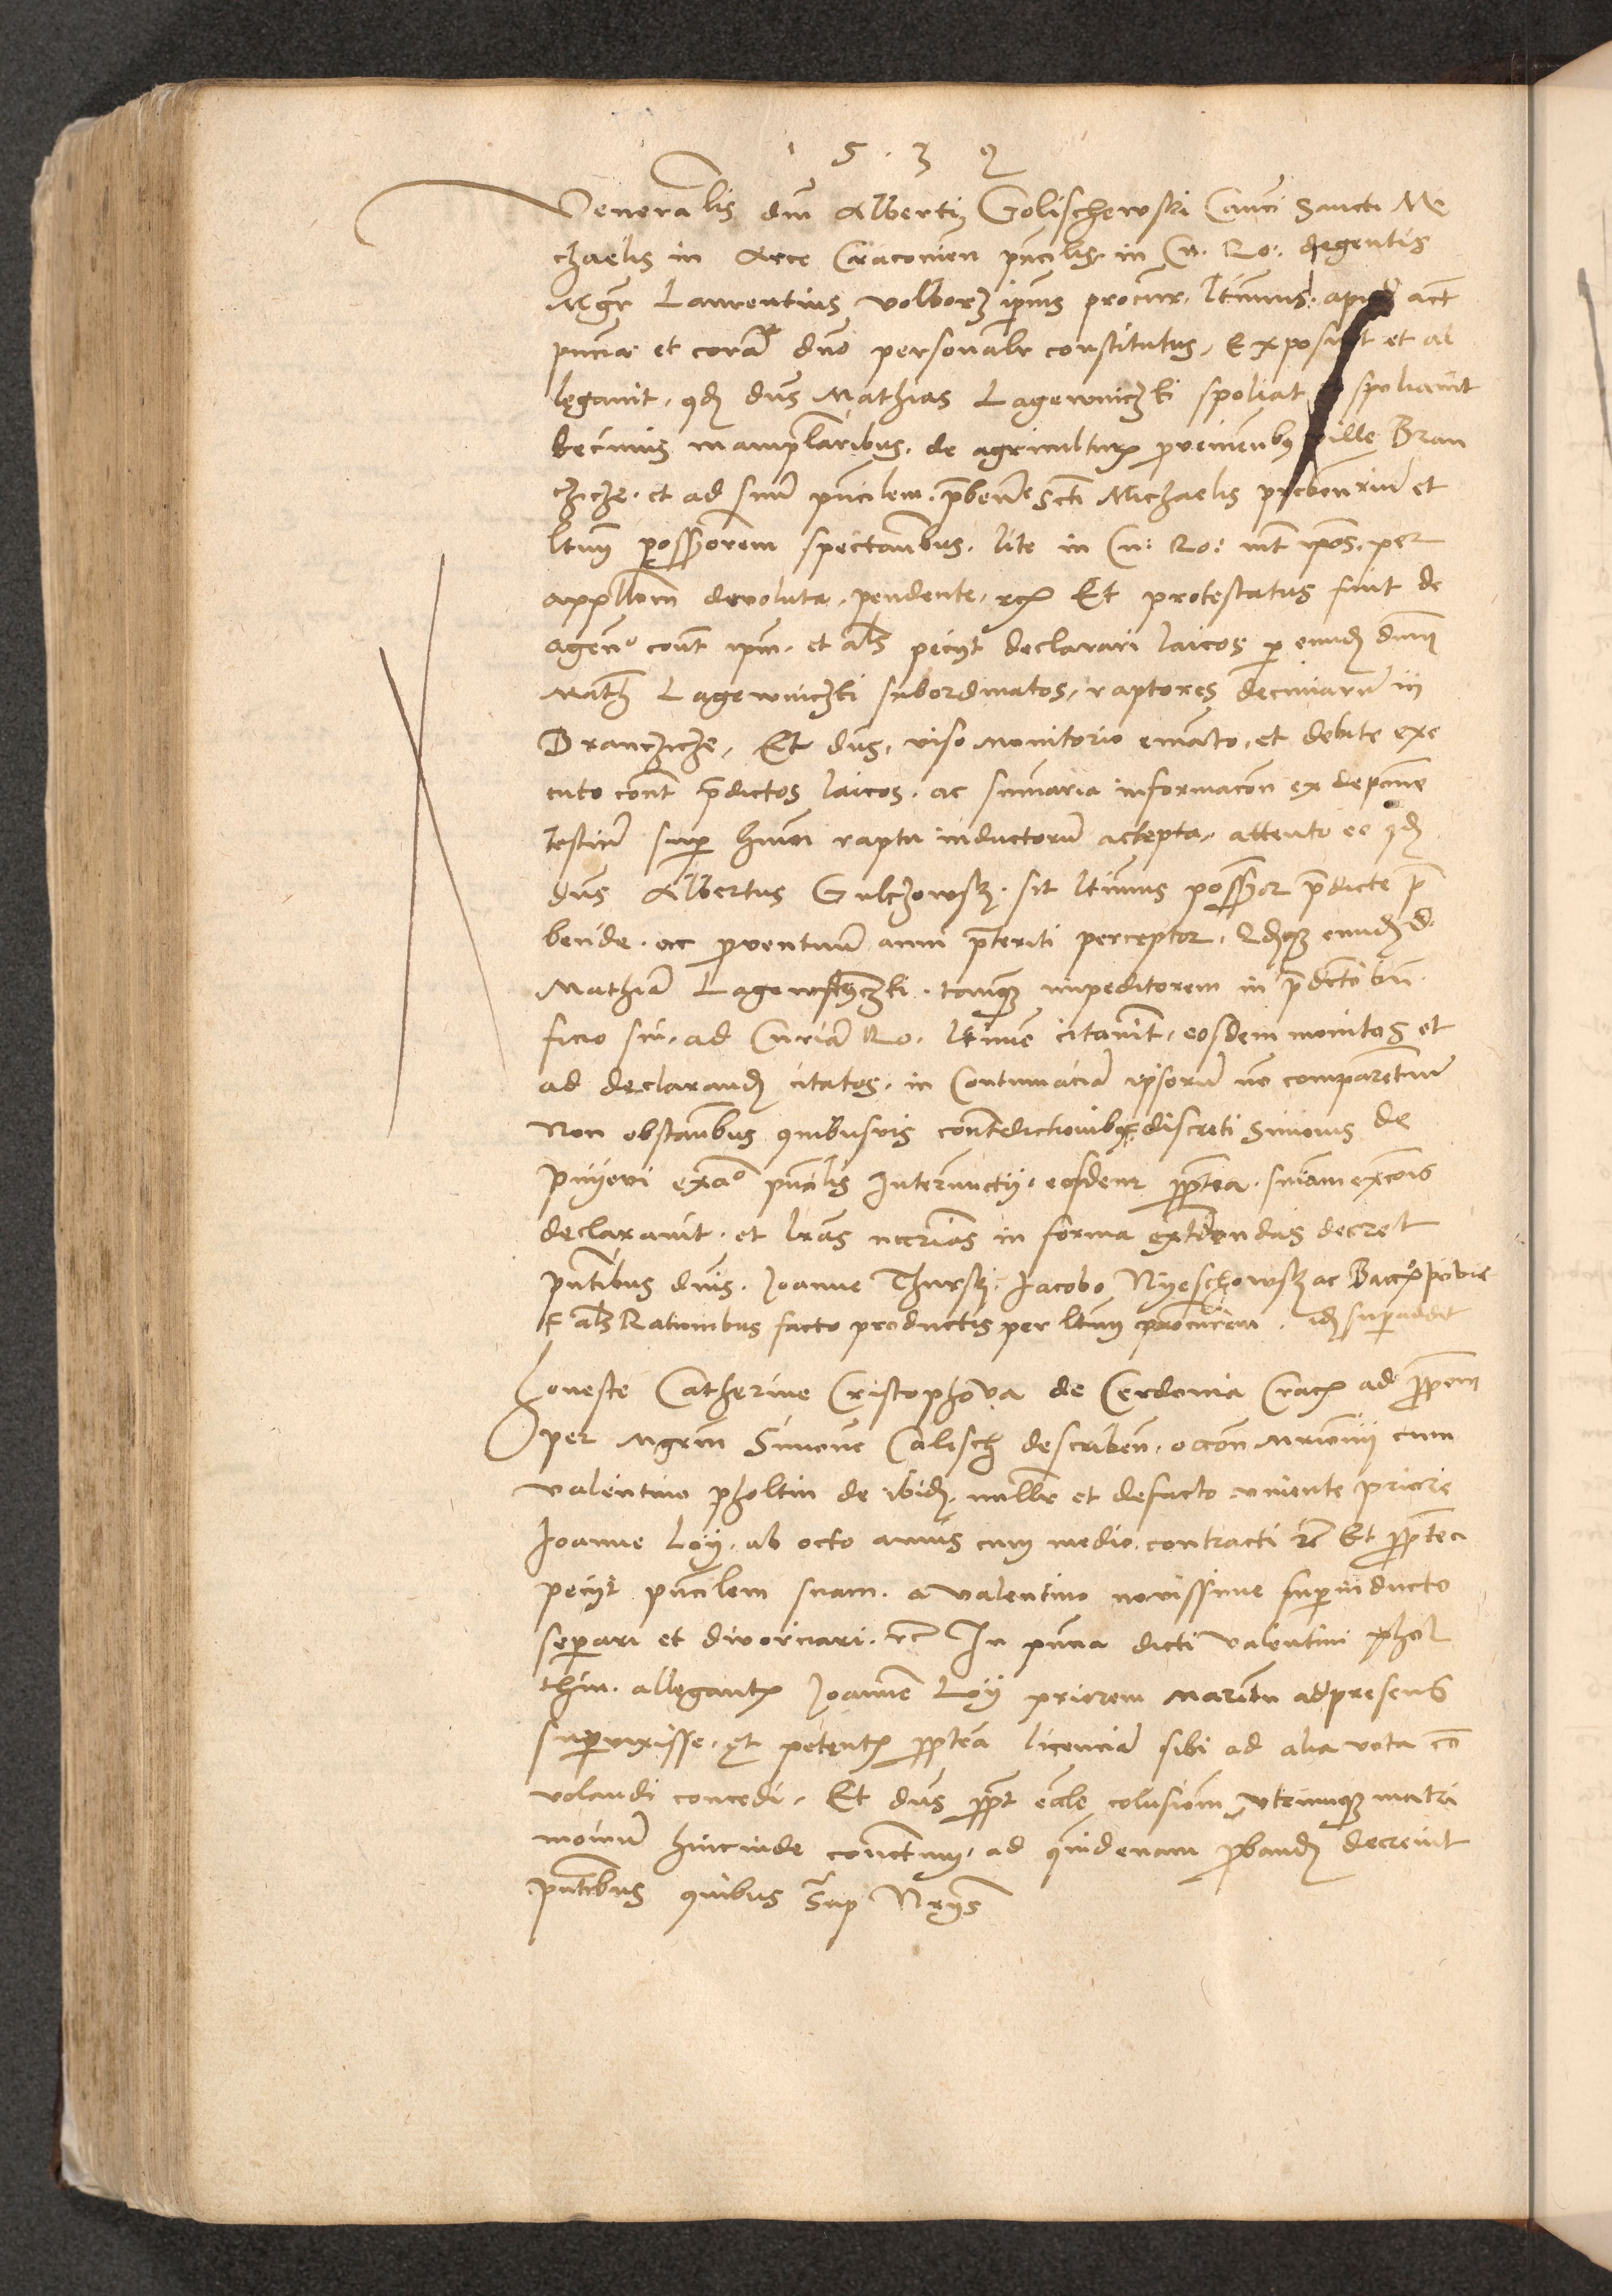 1 5 . 3 2
Venerabilis dni Alberti Golischewski Canci Sancti Mi
chaelis in Arce Cracovien pncilis in Cu. Ro. degentis
Mgr Laurentius Volborz ipius procur. ltimus. apud act
pncia et cora dno personalr constitutus. Exposuit et al
legavit. qd dns Mathias Lagewniczki spoliat spoliavit
decimis manipularibus. de agricultura provenienbus ville Bran
czicze. et ad suu pncilem. prebende Scti Michaelis prebendriu et
ltimu possessorem spectanbus. lite in Cu: Ro: int ipsos. per
appllonem devoluta. pendente. etc Et protestatus fuit de
agendo cont ipm. et als peciit declarari laicos p eundem dnum
Math Lagewniczki subordinatos, raptores decimaru in
Branczicze, Et dns, viso monitorio emanato, et debite exe
cuto cont predictos laicos. ac summaria informacone ex depcione
testiu super huiusmodi raptu inductoru accepta, attento eo qd
dns Albertus Gulczowsky. sit ltimus possessor predicte pre
bende. ac proventuu anni preteriti perceptor. Qdque eundem d.
Mathia Lagewniczki. tanque impeditorem in predicto bn
ficio suo. ad Curia Ro. ltime citavit, eosdem monitos et
ad declarandum citatos. in Contumacia ipsoru no comparentium
Non obstanbus quibusvis contradictionibus discreti Simonis de
exadverso pncilis Interuncti. eosdem propterea. sniam excois
declaravit. et lras necrias in forma extendendas decrevit
pntibus dnis. Joanne Thursky. Jacobo Nyeschowsky ac
als Rationibus facto productis per ltimu procurem. id superaddit
Honeste Catherine Cristophova de Cerdonia Crac ad propoem
per Mgrm Simone Calisch describen. occon Mrimonii cum
Valentino pholtin de ibidem. nullr et defacto vivente priore
Joanne Loy. ab octo annis cum medio contracti etc Et propterea
peciit pncilem suam. a Valentino novissime superinducto
separi et divorciari. etc In pncia dicti Valentini phol
thin. allegantis Joannem Loy priorem maritu ad presens
supervixisse. et petentis propterea licencia sibi ad alia vota co
volandi concedi. Et dns propt evale colusione utrumque matri
moniu hincinde contractum. ad quindenam probandum decrevit
pntibus quibus Sup Nrys